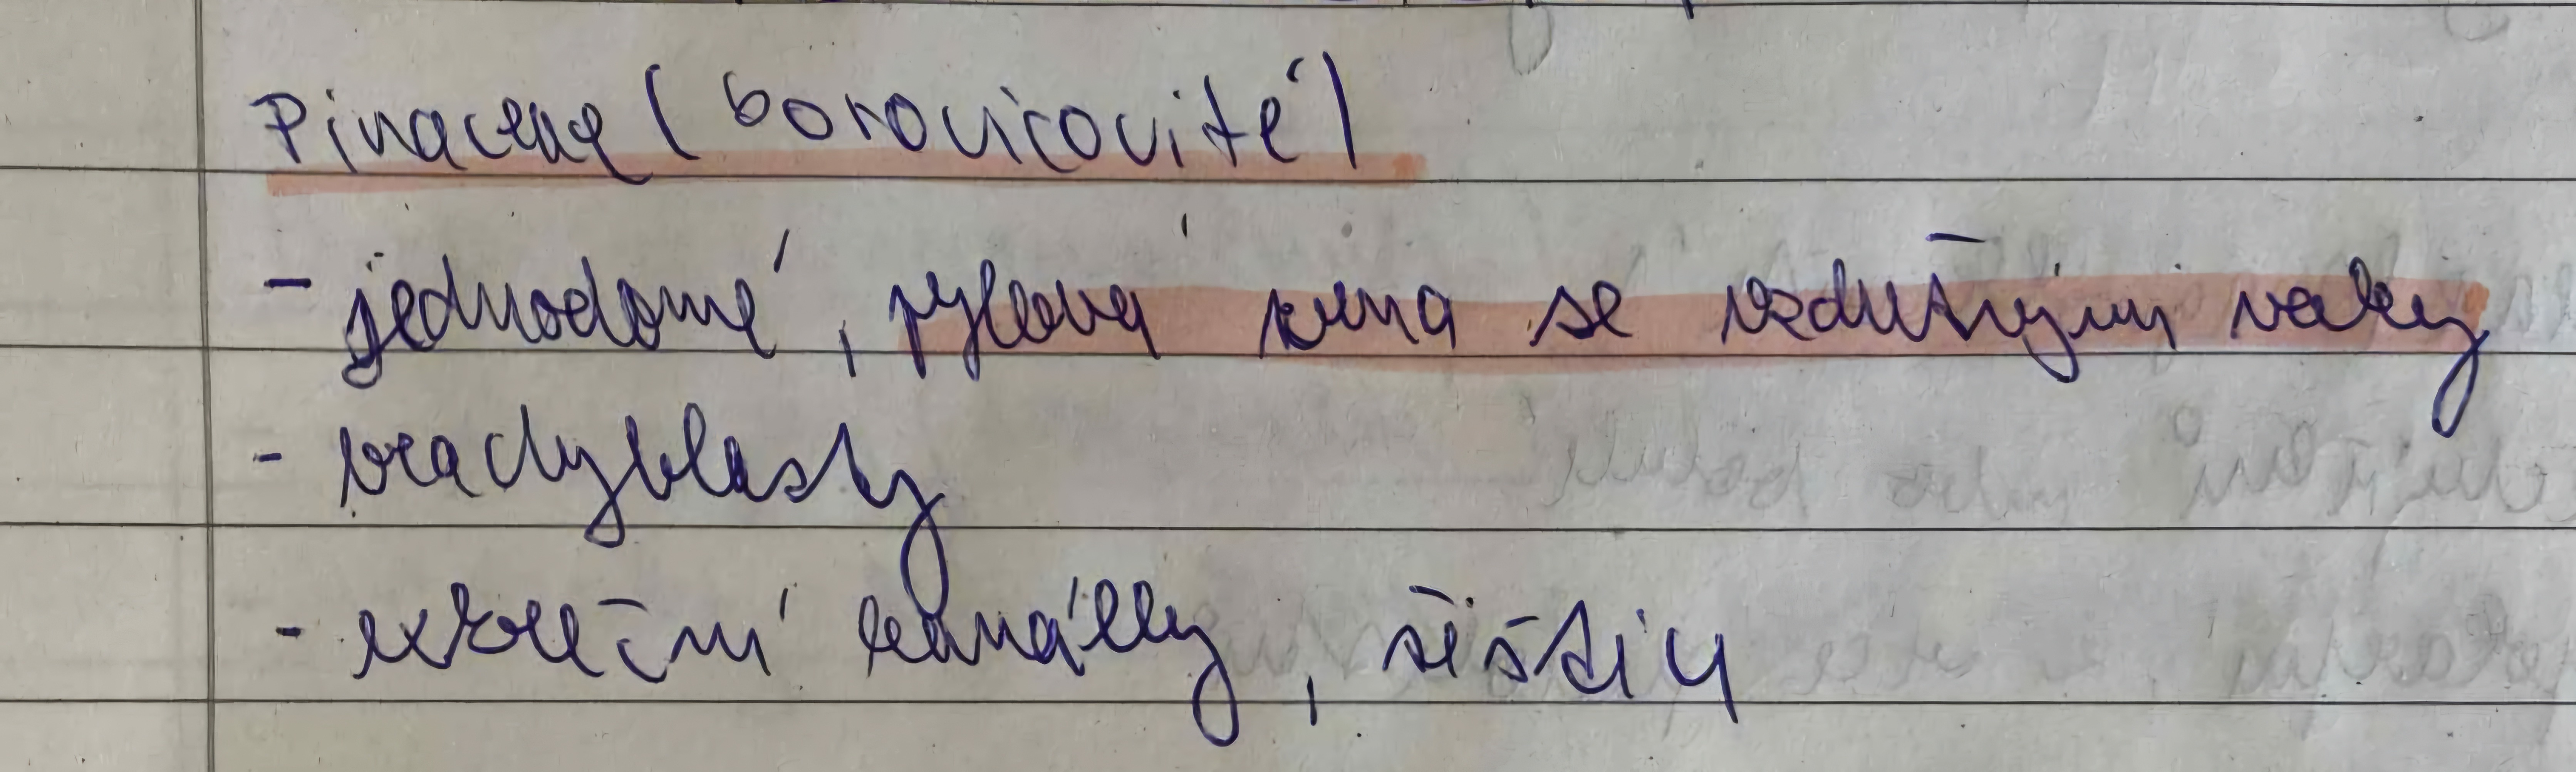 Pinaceae (borovicovité)
- jednodomé, pylová zrna se vzdušnými vaky
- brachyblasty
- exkreční kanálky, šištice